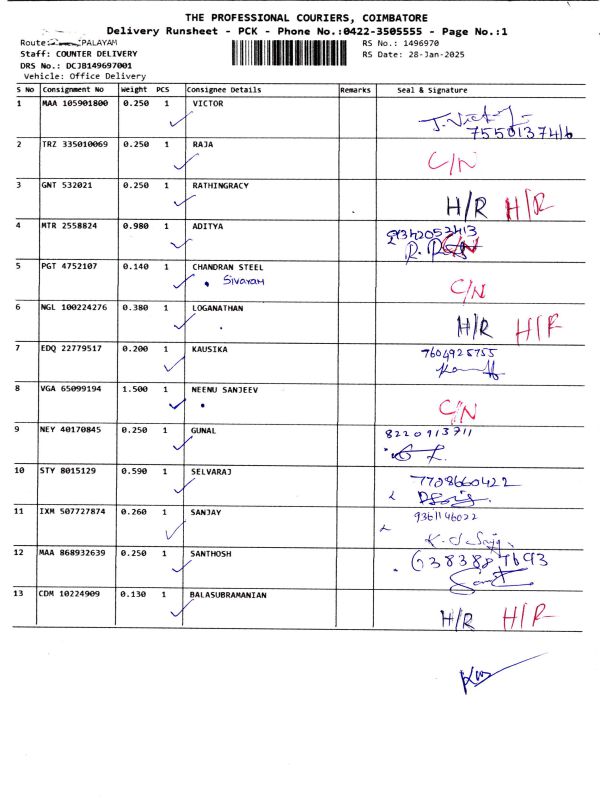 THE PROFESSIONAL COURIERS, COIMBATORE
Delivery Runsheet - PCK - Phone No.:0422-3505555 - Page No.:1
Route: PALAYAM RS No.: 1496970
Staff: COUNTER DELIVERY RS Date: 28-Jan-2025
DRS No.: DCJB149697001
Vehicle: Office Delivery
S No Consignment No Weight PCS Consignee Details Remarks Seal & Signature
1 MAA 105901800 0.250 1 VICTOR
J. Victor
7550137416
2 TRZ 335010069 0.250 1 RAJA
C/N
3 GNT 532021 0.250 1 RATHINGRACY
H/R H/R
4 MTR 2558824 0.980 1 ADITYA 9342053413
C/N
5 PGT 4752107 0.140 1 CHANDRAN STEEL
Sivaram C/N
6 NGL 100224276 0.380 1 LOGANATHAN
H/R H/R
7 EDQ 22779517 0.200 1 KAUSIKA 7604925755
8 VGA 65099194 1.500 1 NEENU SANJEEV
C/N
9 NEY 40170845 0.250 1 GUNAL 8220913711
10 STY 8015129 0.590 1 SELVARAJ
7708660422
11 IXM 507727874 0.260 1 SANJAY 9361146022
12 MAA 868932639 0.250 1 SANTHOSH 6383887693
13 CDM 10224909 0.130 1 BALASUBRAMANIAN
H/R H/R